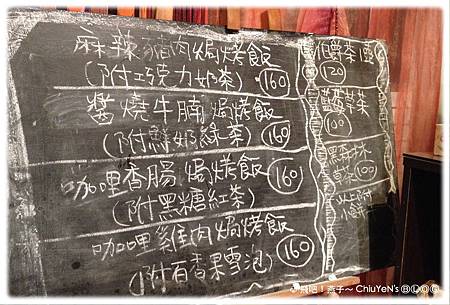 麻辣豬肉焗烤飯
(附巧克力奶茶) 160
醬燒牛腩焗烤飯
(附鮮奶綠茶) 160
咖哩香腸焗烤飯
(附黑糖紅茶) 160
咖哩雞肉焗烤飯 160
(附百香果雪泡)
茶壺
120
草茶
100
黑森林
100
以上附
小餅
飛吧!燕子~ ChiuYeN's BLOG